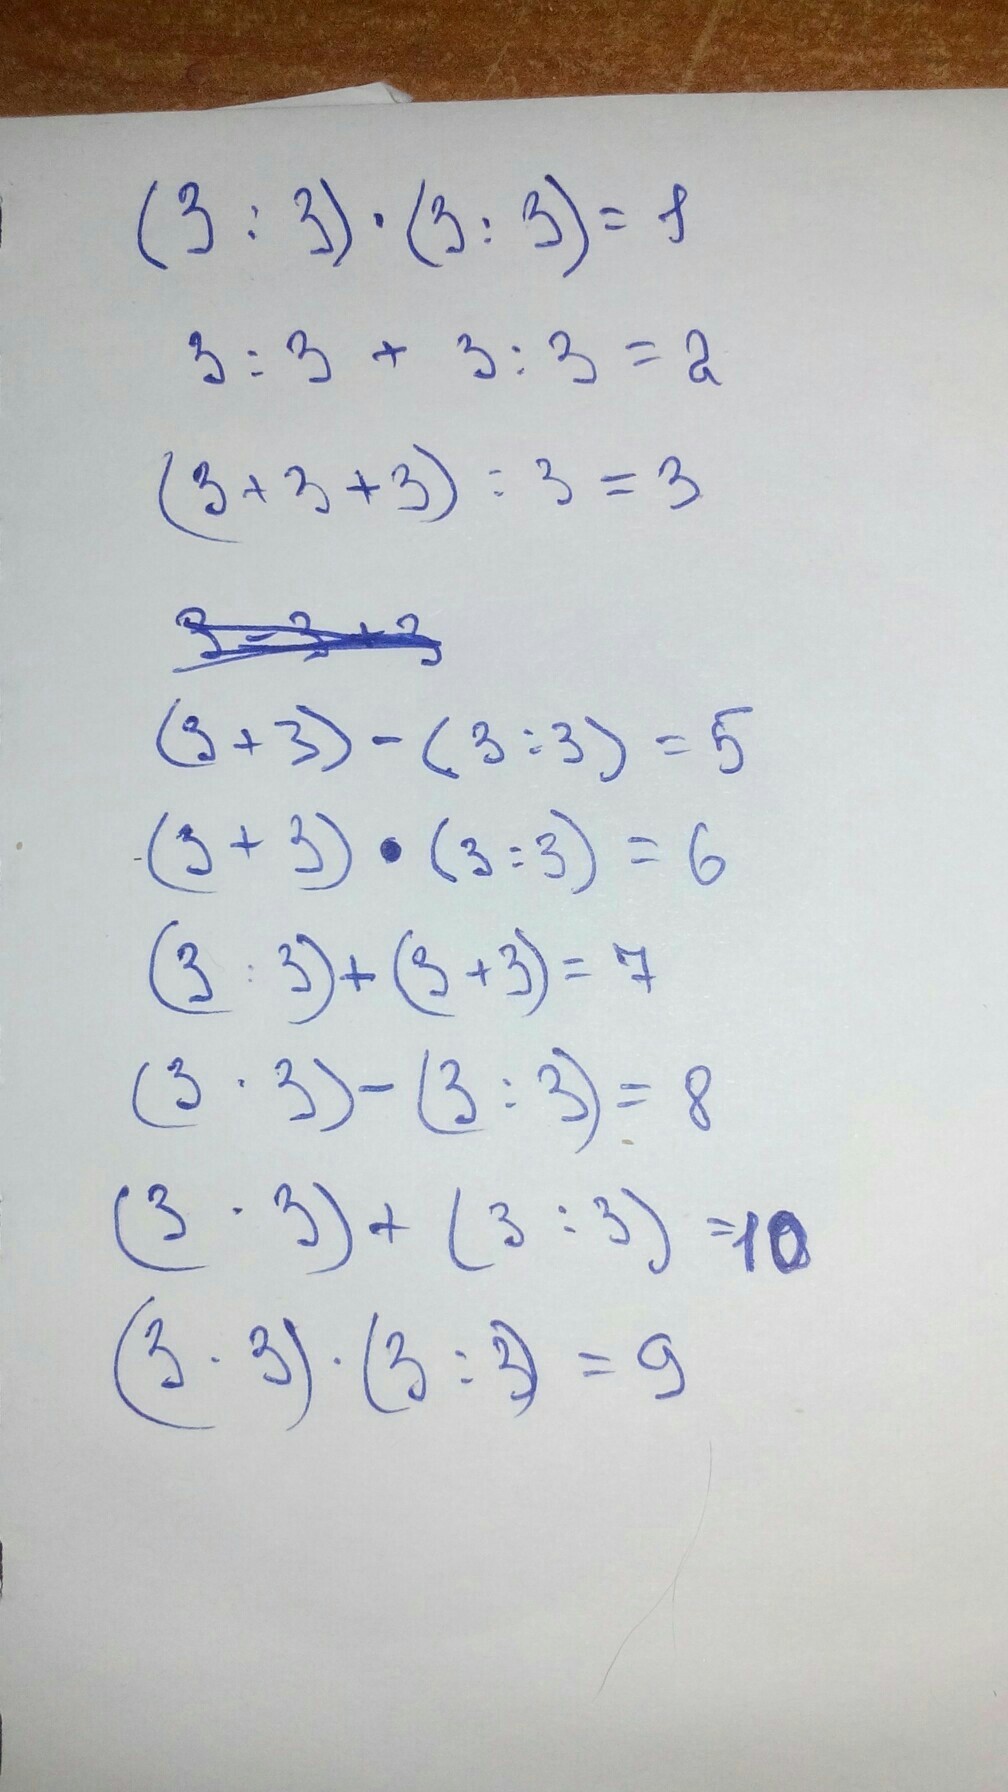 (3 : 3) · (3 : 3) = 1
3 : 3 + 3 : 3 = 2
(3 + 3 + 3) : 3 = 3
3 - 3 + 3
(3 + 3) - (3 : 3) = 5
(3 + 3) · (3 : 3) = 6
(3 : 3) + (3 + 3) = 7
(3 · 3) - (3 : 3) = 8
(3 · 3) + (3 : 3) = 10
(3 · 3) · (3 : 3) = 9